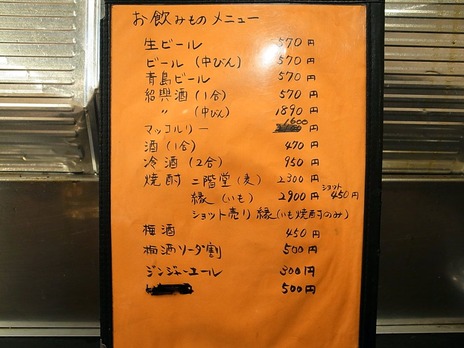 お飲みもの メニュー
生ビール 570円
ビール (中びん) 570円
青島ビール 570円
紹興酒 (1合) 570円
〃 (中びん) 1890円
マッコルリー 1600円
酒 (1合) 470円
冷酒 (2合) 950円
焼酎 二階堂 (麦) 2300円
縁 (いも) 2900円 ショット 450円
ショット売り 縁 (いも焼酎のみ)
梅酒 450円
梅酒ソーダ割 500円
ジンジャーエール 300円
500円